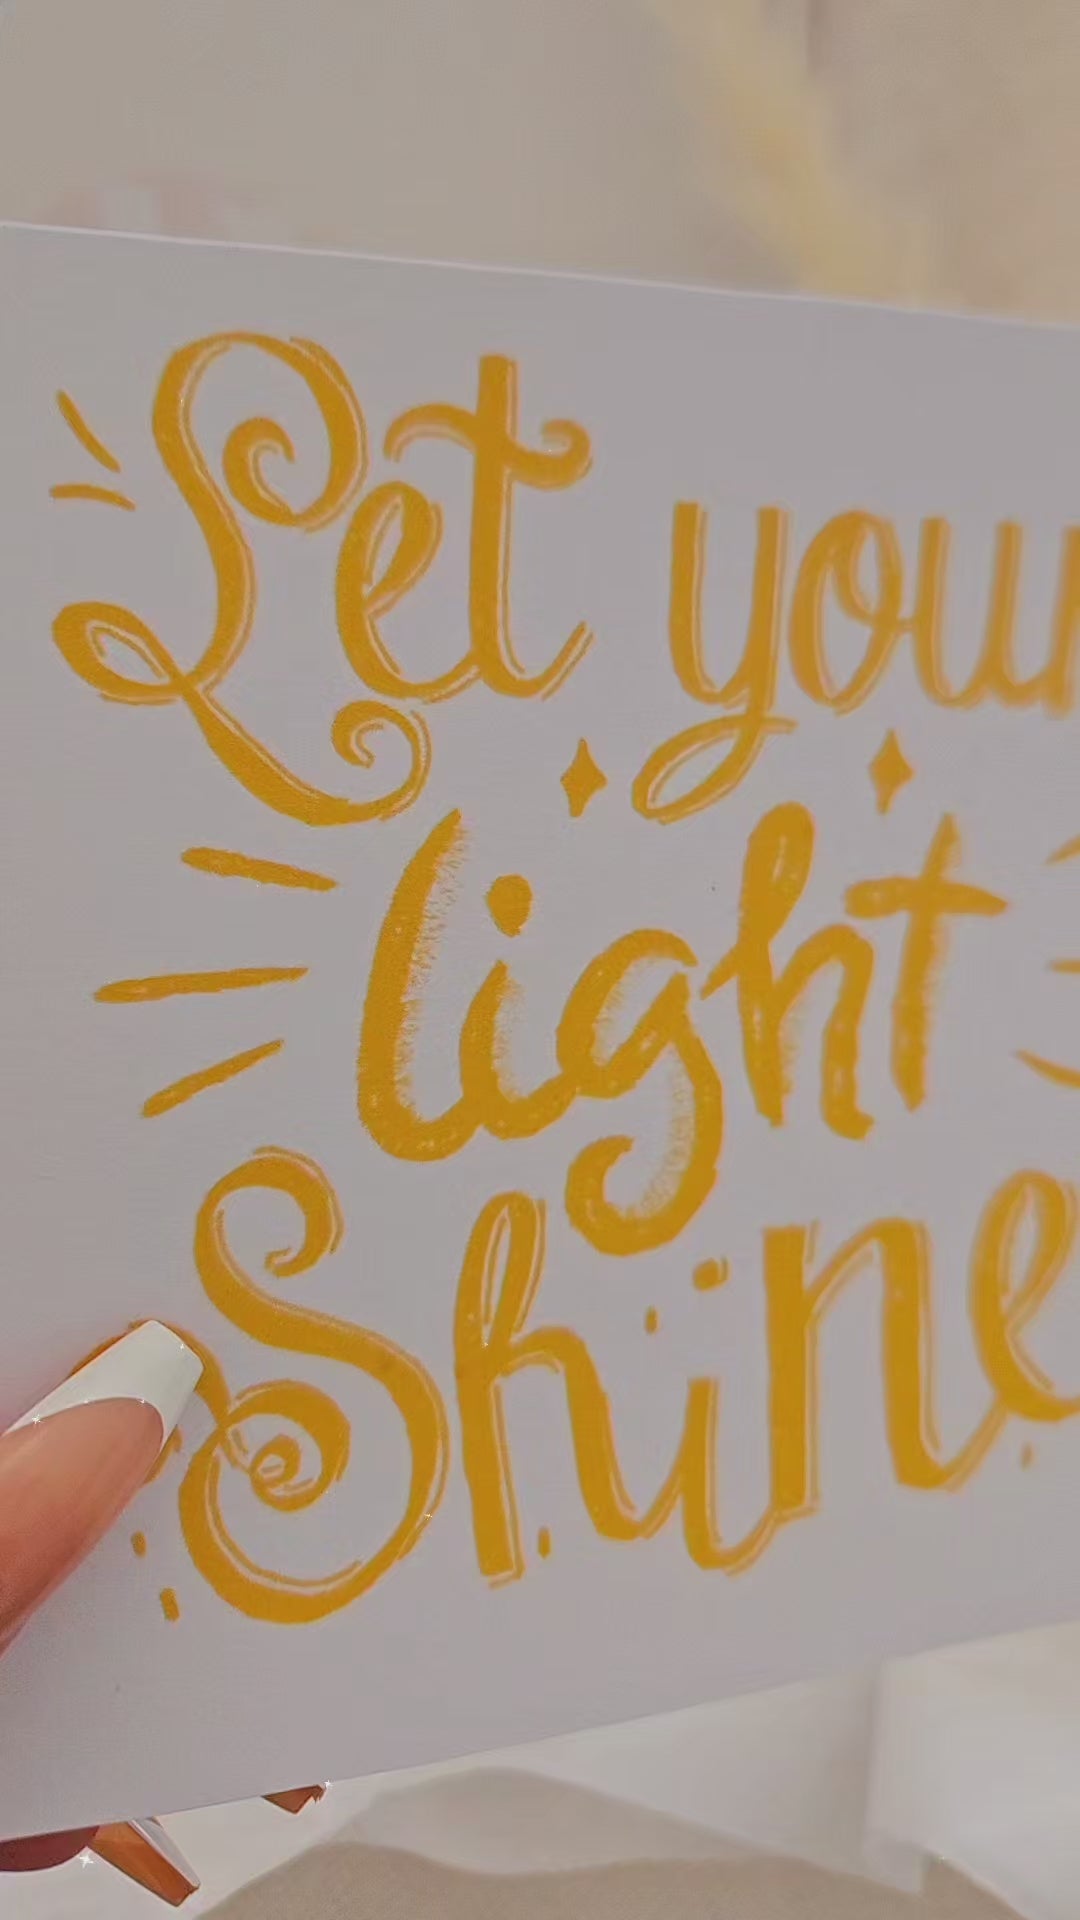 Let your
light
Shine